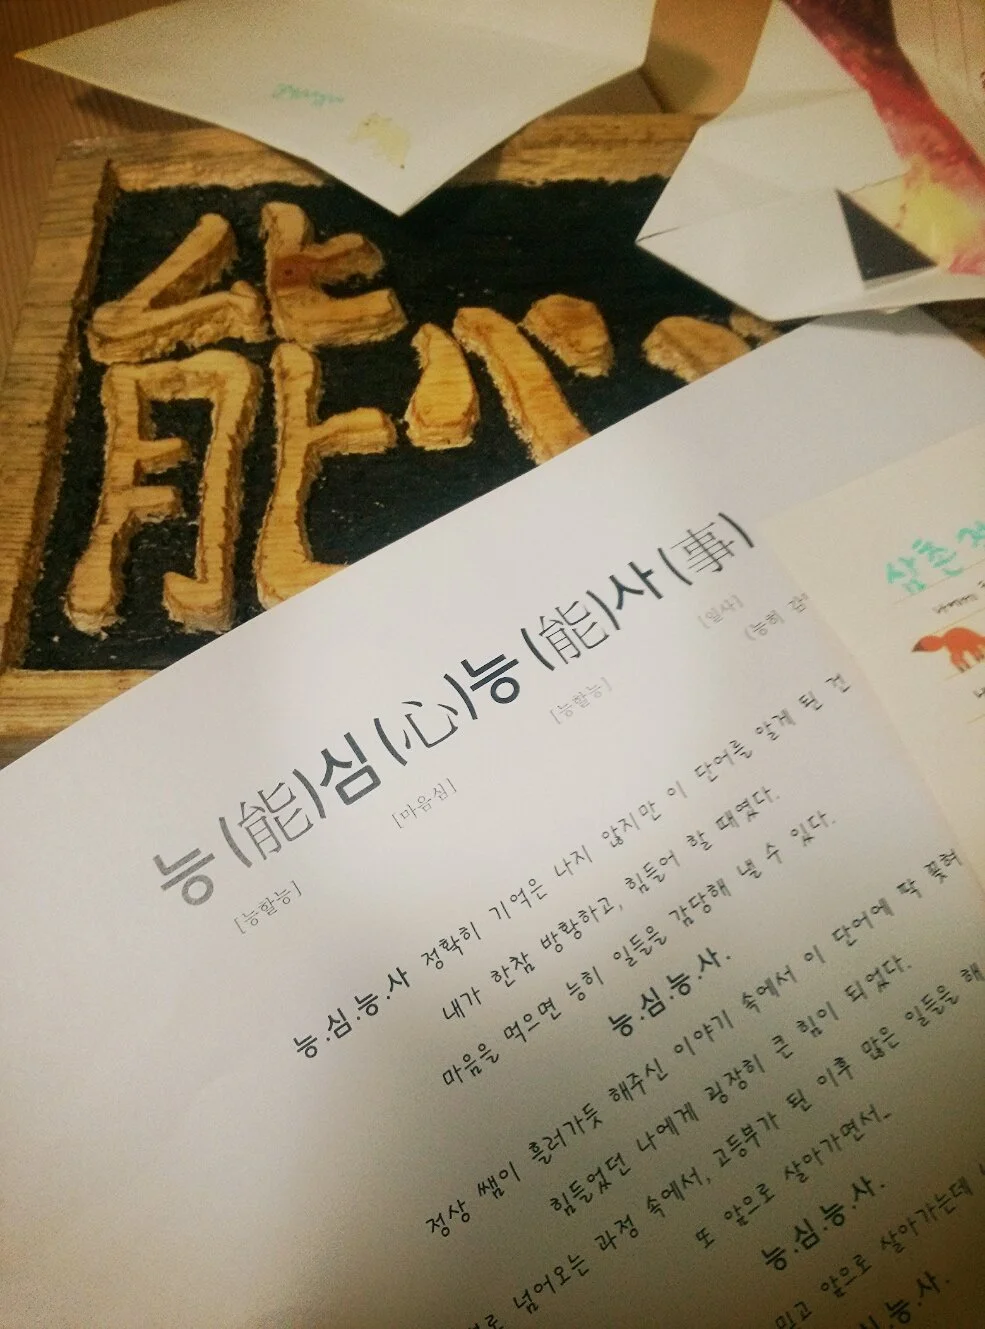 能心
삼촌
능(能)심(心)능(能)사(事)
[능할능] [마음심] [능할능] [일사]
(능히 감
능.심.능.사 정확히 기억은 나지 않지만 이 단어를 알게 된 건
내가 한참 방황하고, 힘들어 할 때였다.
마음을 먹으면 능히 일들을 감당해 낼 수 있다.
능.심.능.사.
정상 쌤이 흘러가듯 해주신 이야기 속에서 이 단어에 딱 꽂혀
힘들었던 나에게 굉장히 큰 힘이 되었다.
넘어오는 과정 속에서, 고등부가 된 이후 많은 일들을 해
또 앞으로 살아가면서..
능.심.능.사.
믿고 앞으로 살아가는데
심.능.사.